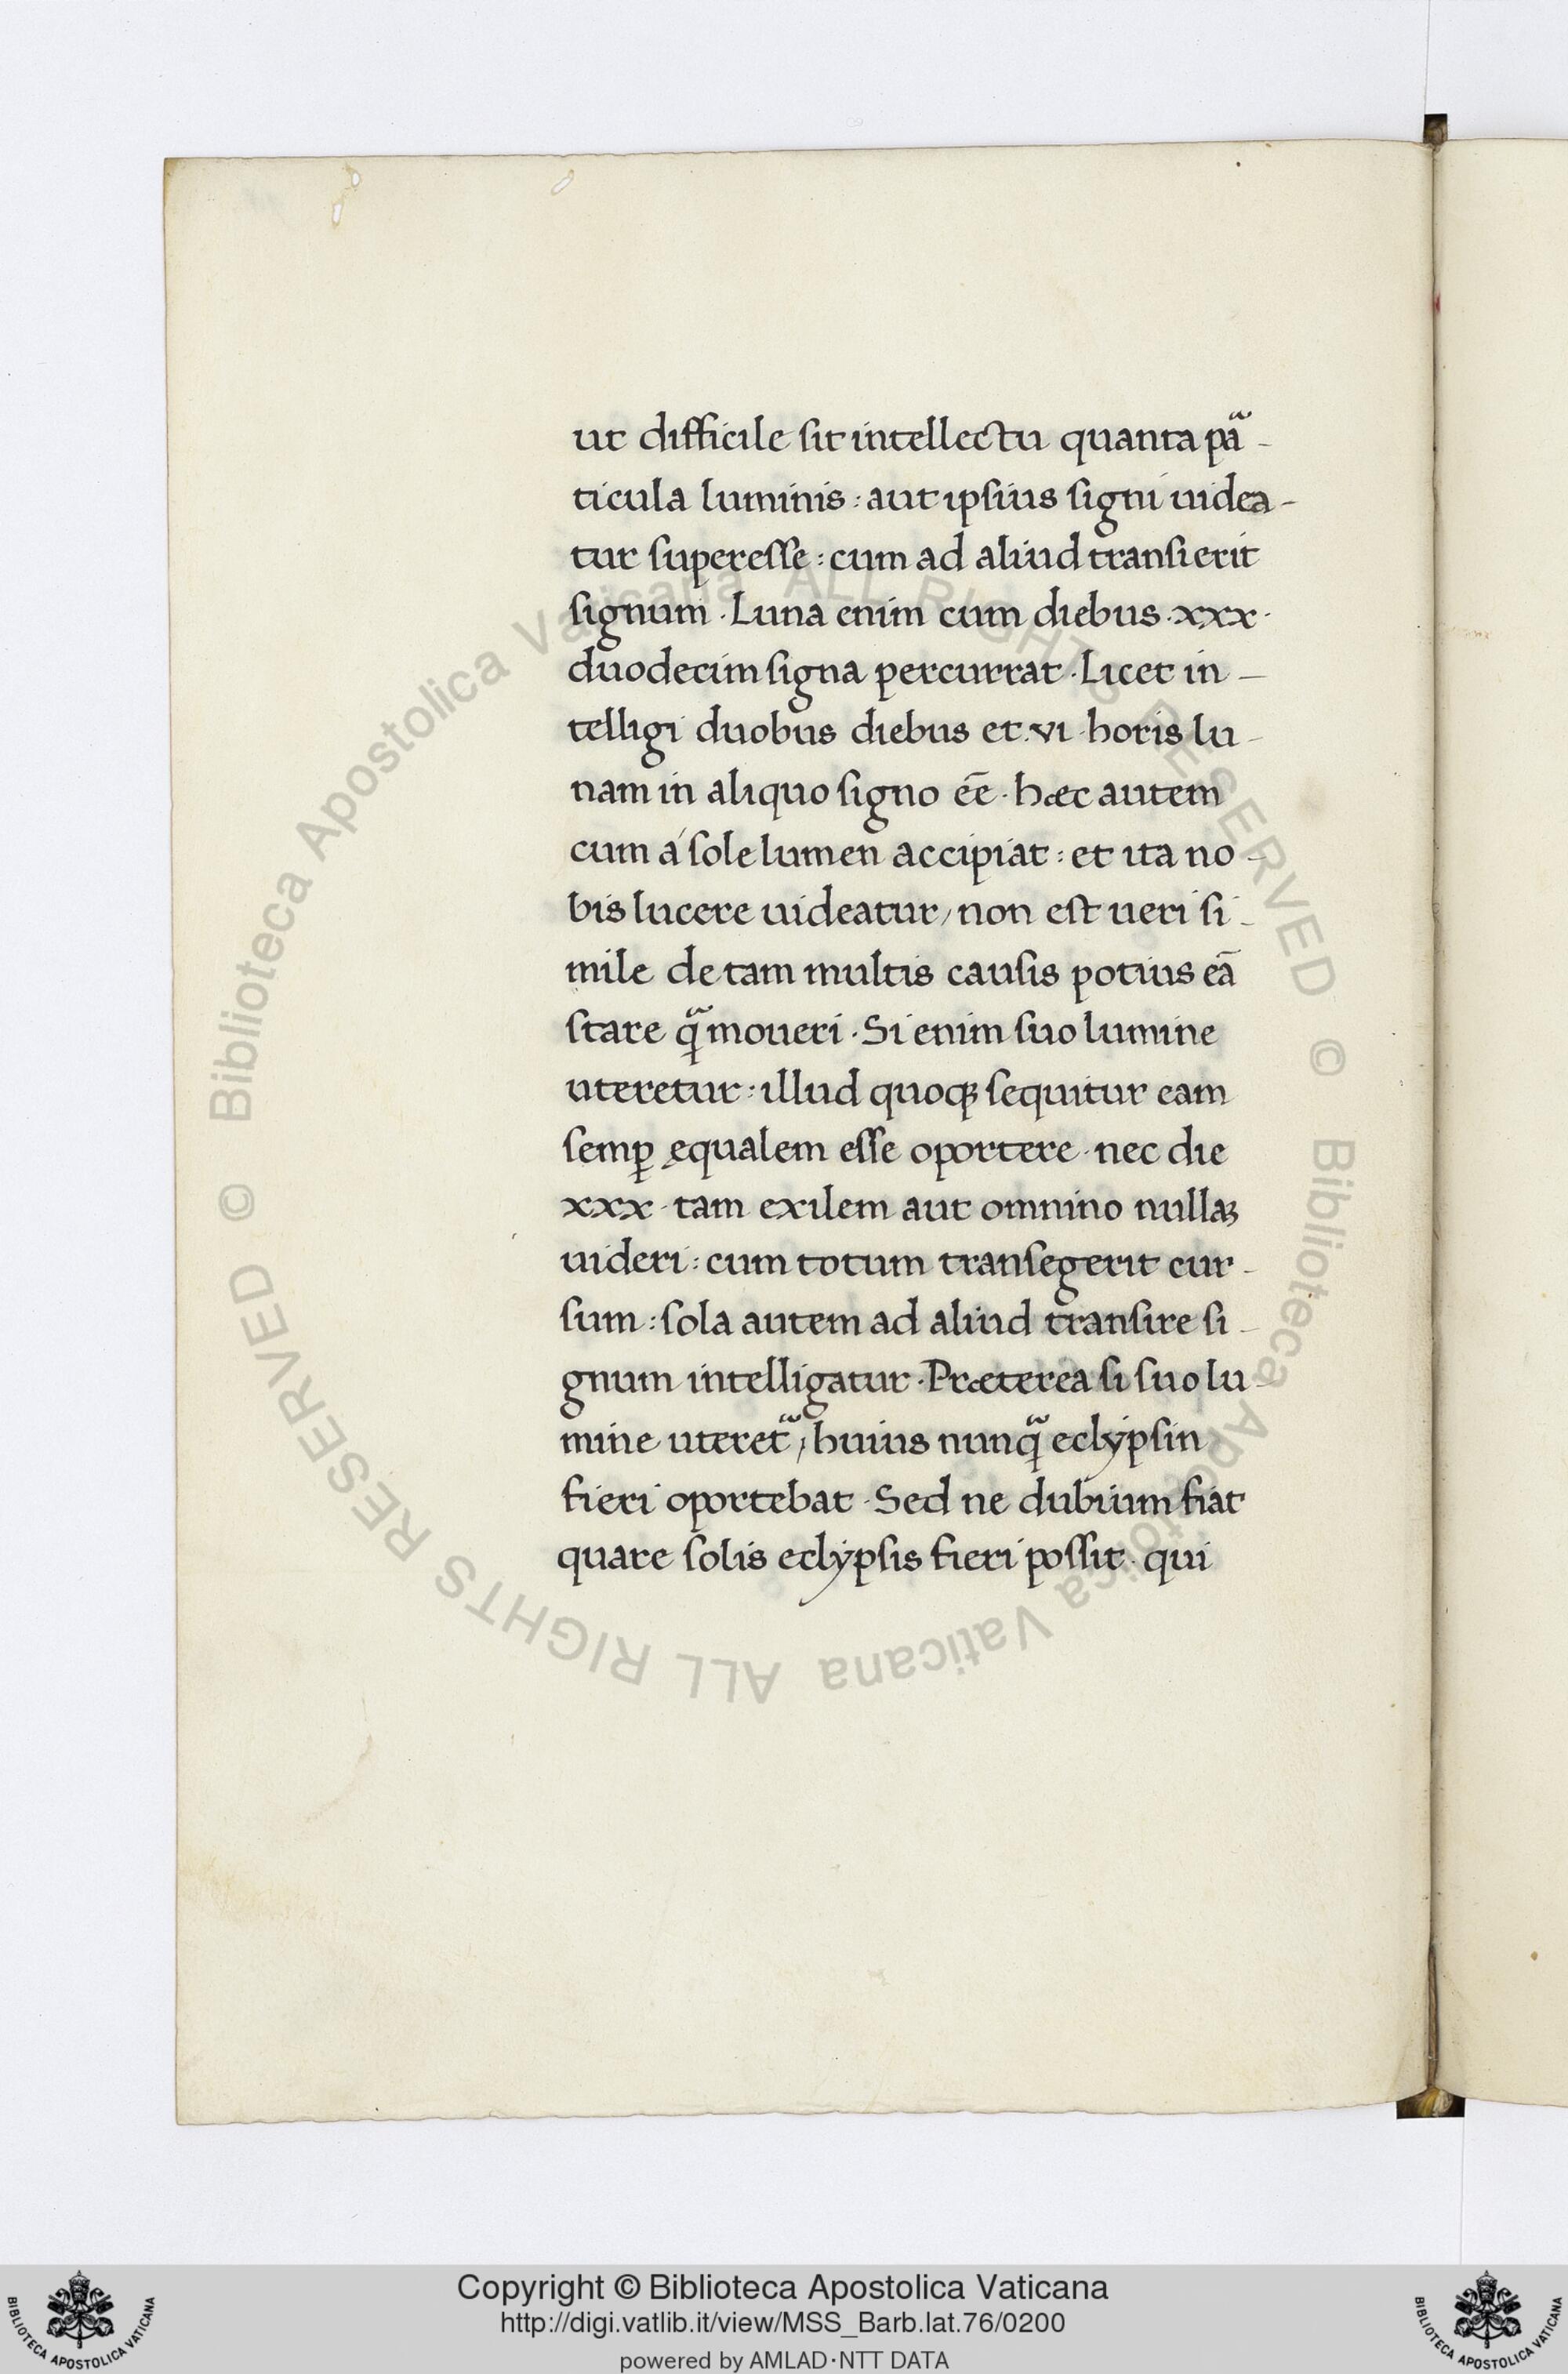 ut difficile sit intellectu quanta pa̛ -
ticula luminis : aut ipsius signi uidea -
tur superesse : cum ad aliud transierit
signum · Luna enim cum diebus · xxx ·
duodecim signa percurrat · Licet in -
telligi duobus diebus et · vi · horis lu -
nam in aliquo signo eē · hæc autem
cum á sole lumen accipiat : et ita no -
bis lucere uideatur / non est ueri si -
mile de tam multis causis potius eā
stare qᷓ moueri · Si enim suo lumine
uteretur : illud quoqꝫ sequitur eam
semꝑ ęqualem esse oportere · nec die
xxx · tam exilem aut omnino nullaꝫ
uideri : cum totum transegerit cur -
sum : sola autem ad aliud transire si -
gnum intelligatur · Præterea si suo lu -
mine uteretᷓ / huius nunqᷓ eclẏpsin
fieri oportebat · Sed ne dubium fiat
quare solis eclẏpsis fieri possit · qui
© Biblioteca Apostolica Vaticana ALL RIGHTS RESERVED © Biblioteca Apostolica Vaticana ALL RIGHTS RESERVED
Copyright © Biblioteca Apostolica Vaticana
http://digi.vatlib.it/view/MSS_Barb.lat.76/0200
powered by AMLAD·NTT DATA
BIBLIOTECA APOSTOLICA VATICANA
BIBLIOTECA APOSTOLICA VATICANA